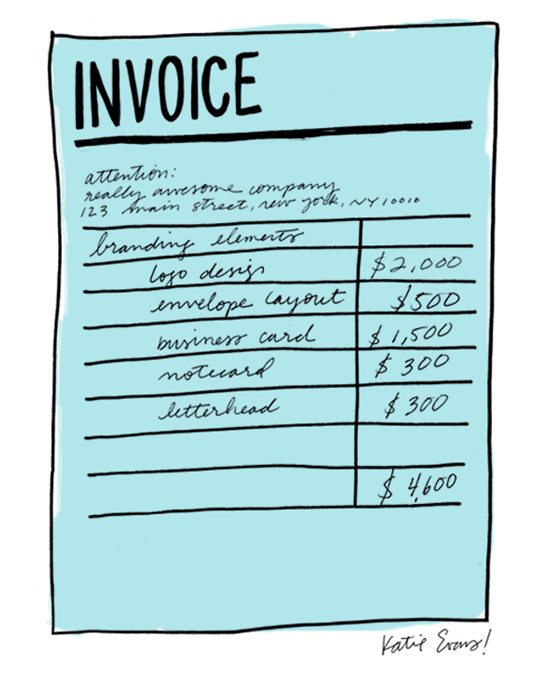 INVOICE
attention:
really awesome company
123 main street, new york, NY 10010
branding elements
logo design $2,000
envelope layout $500
business card $1,500
notecard $300
letterhead $300
$4,600
Katie Evans!